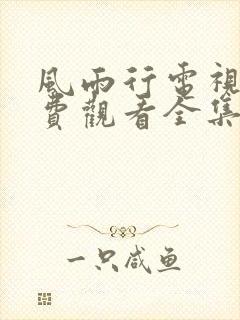 風雨行電視
費觀看全集
一只咸鱼